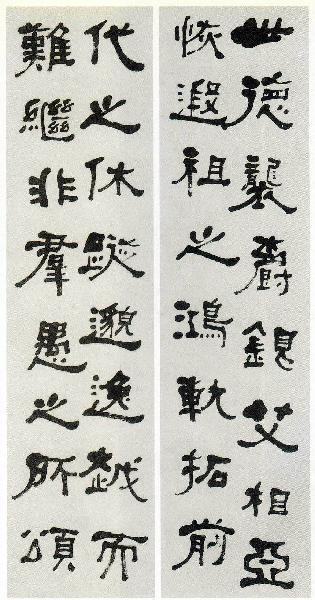 世德襲爵銀艾相亞
恢遐祖之鴻軌拓前
代之休蹤邈逸越而
難繼非羣愚之所頌